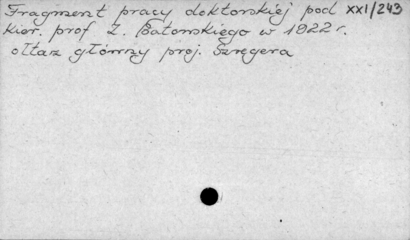 Fragment pracy doktorskiej pod XXI/243
kier. prof Z. Batowskiego w 1922 r.
ołtaz główny proj. Szregera